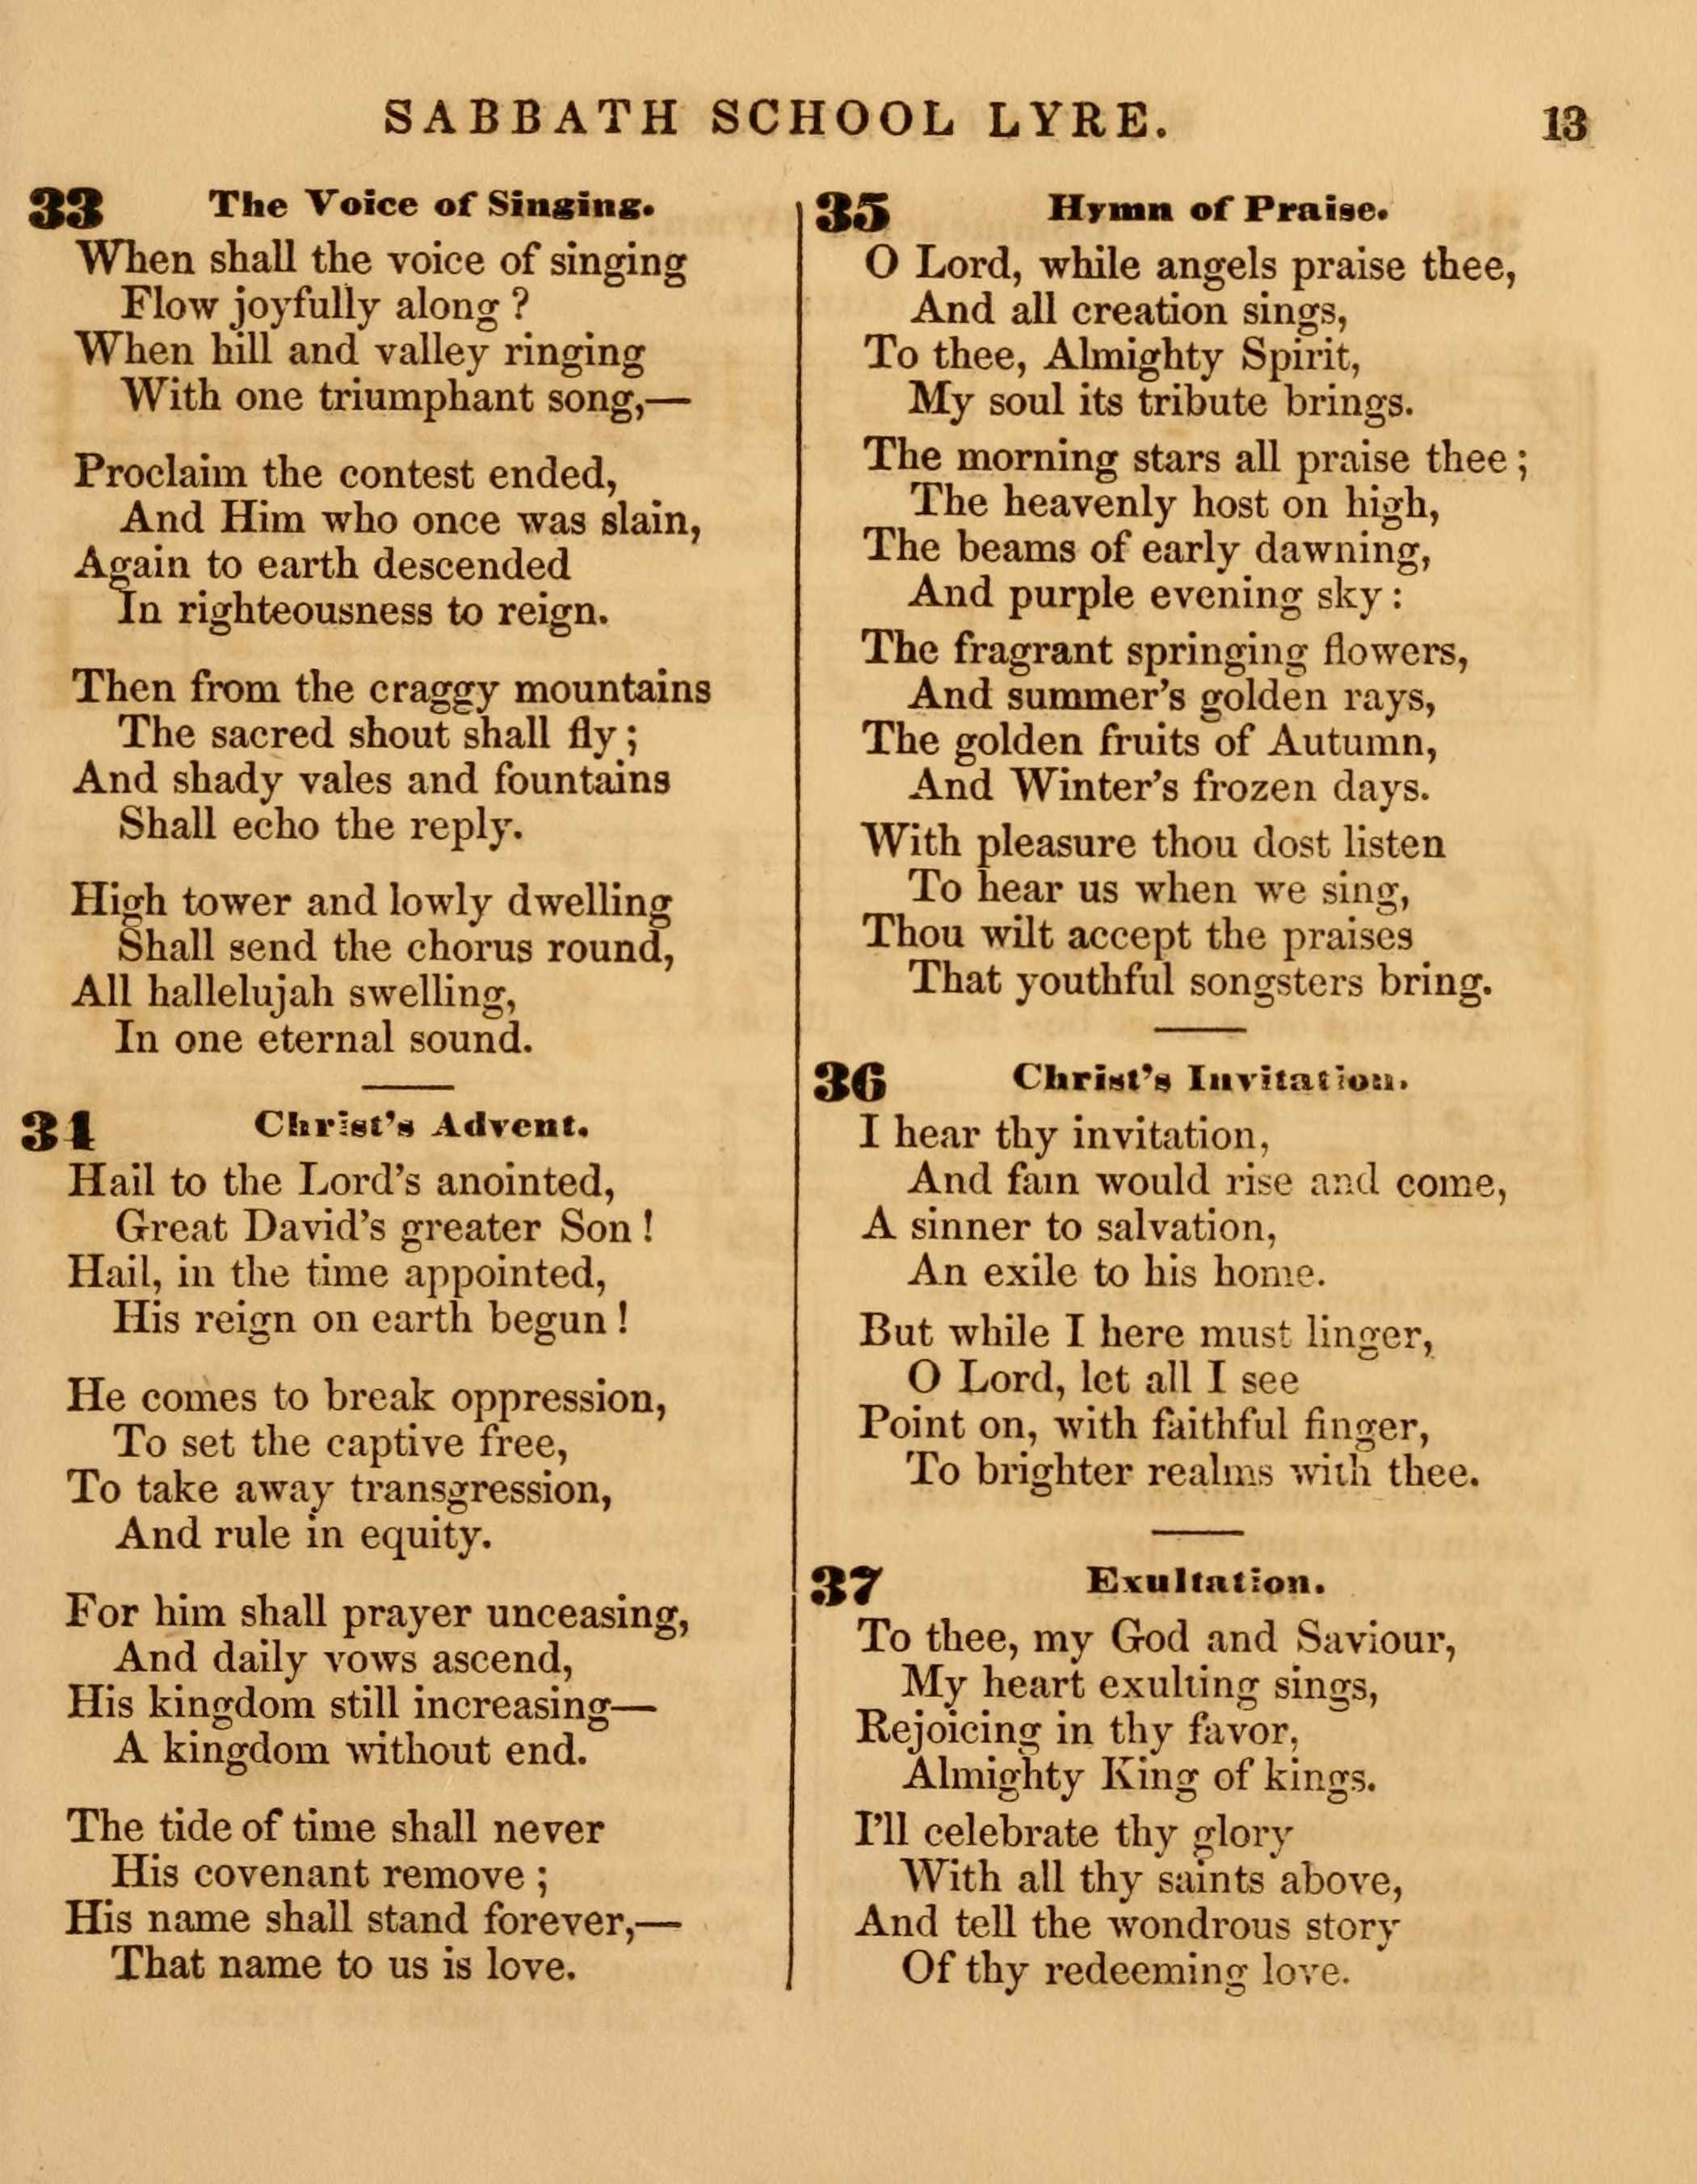 SABBATH SCHOOL LYRE. 13
33 The Voice of Singing.
When shall the voice of singing
Flow joyfully along ?
When hill and valley ringing
With one triumphant song,—
Proclaim the contest ended,
And Him who once was slain,
Again to earth descended
In righteousness to reign.
Then from the craggy mountains
The sacred shout shall fly ;
And shady vales and fountains
Shall echo the reply.
High tower and lowly dwelling
Shall send the chorus round,
All hallelujah swelling,
In one eternal sound.
34 Christ's Advent.
Hail to the Lord's anointed,
Great David's greater Son !
Hail, in the time appointed,
His reign on earth begun !
He comes to break oppression,
To set the captive free,
To take away transgression,
And rule in equity.
For him shall prayer unceasing,
And daily vows ascend,
His kingdom still increasing—
A kingdom without end.
The tide of time shall never
His covenant remove ;
His name shall stand forever,—
That name to us is love.
35 Hymn of Praise.
O Lord, while angels praise thee,
And all creation sings,
To thee, Almighty Spirit,
My soul its tribute brings.
The morning stars all praise thee ;
The heavenly host on high,
The beams of early dawning,
And purple evening sky :
The fragrant springing flowers,
And summer's golden rays,
The golden fruits of Autumn,
And Winter's frozen days.
With pleasure thou dost listen
To hear us when we sing,
Thou wilt accept the praises
That youthful songsters bring.
36 Christ's Invitation.
I hear thy invitation,
And fain would rise and come,
A sinner to salvation,
An exile to his home.
But while I here must linger,
O Lord, let all I see
Point on, with faithful finger,
To brighter realms with thee.
37 Exultation.
To thee, my God and Saviour,
My heart exulting sings,
Rejoicing in thy favor,
Almighty King of kings.
I'll celebrate thy glory
With all thy saints above,
And tell the wondrous story
Of thy redeeming love.